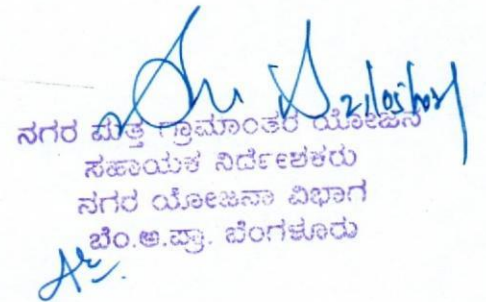 21/05/2021
ನಗರ ಮತ್ತು ಗ್ರಾಮಾಂತರ ಯೋಜನೆ
ಸಹಾಯಕ ನಿರ್ದೇಶಕರು
ನಗರ ಯೋಜನಾ ವಿಭಾಗ
ಬೆಂ.ಅ.ಪ್ರಾ. ಬೆಂಗಳೂರು